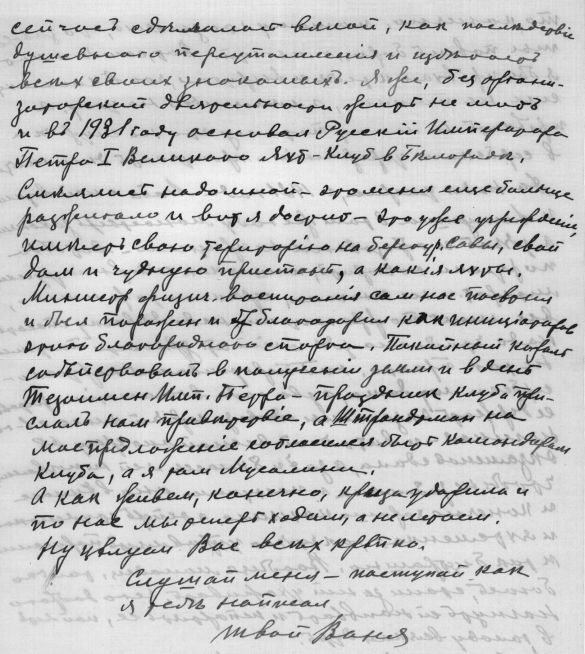 сейчасъ сдѣлался вялой, как последствіе
душевного переутомленія и избѣгаетъ
всѣх своих знакомыхъ. Я же, без органи-
заторской дѣятельности жить не могъ
и въ 1931 году основал Русскій Императора
Петра I Великого Яхт-Клуб в Бѣлградѣ.
Смѣялись надо мной - это меня еще больше
разжигало и вот я достиг - это уже учрежденіе,
имѣетъ свою територію на берегу р. Савы, свой
дом и чудную пристань, а какія яхты.
Министр физич. воспитанія сам нас посѣтил
и был поражен и благодарил как иниціаторов
этого благородного спорта. Покойный король
содѣйствовал в полученіи земли и в день
Тезоимен. Имп. Петра - праздник клуба при-
слалъ нам привѣтствіе, а Штрандтман на
мое предложеніе согласился быть командором
клуба, а я там Мусолини.
А как живем, конечно, кризис ударил и
по нас мы теперь ходим, а не летаем.
Ну цѣлуем Вас всѣх крѣпко.
Слушай меня - поступай как
я тебѣ написал
твой Ваня